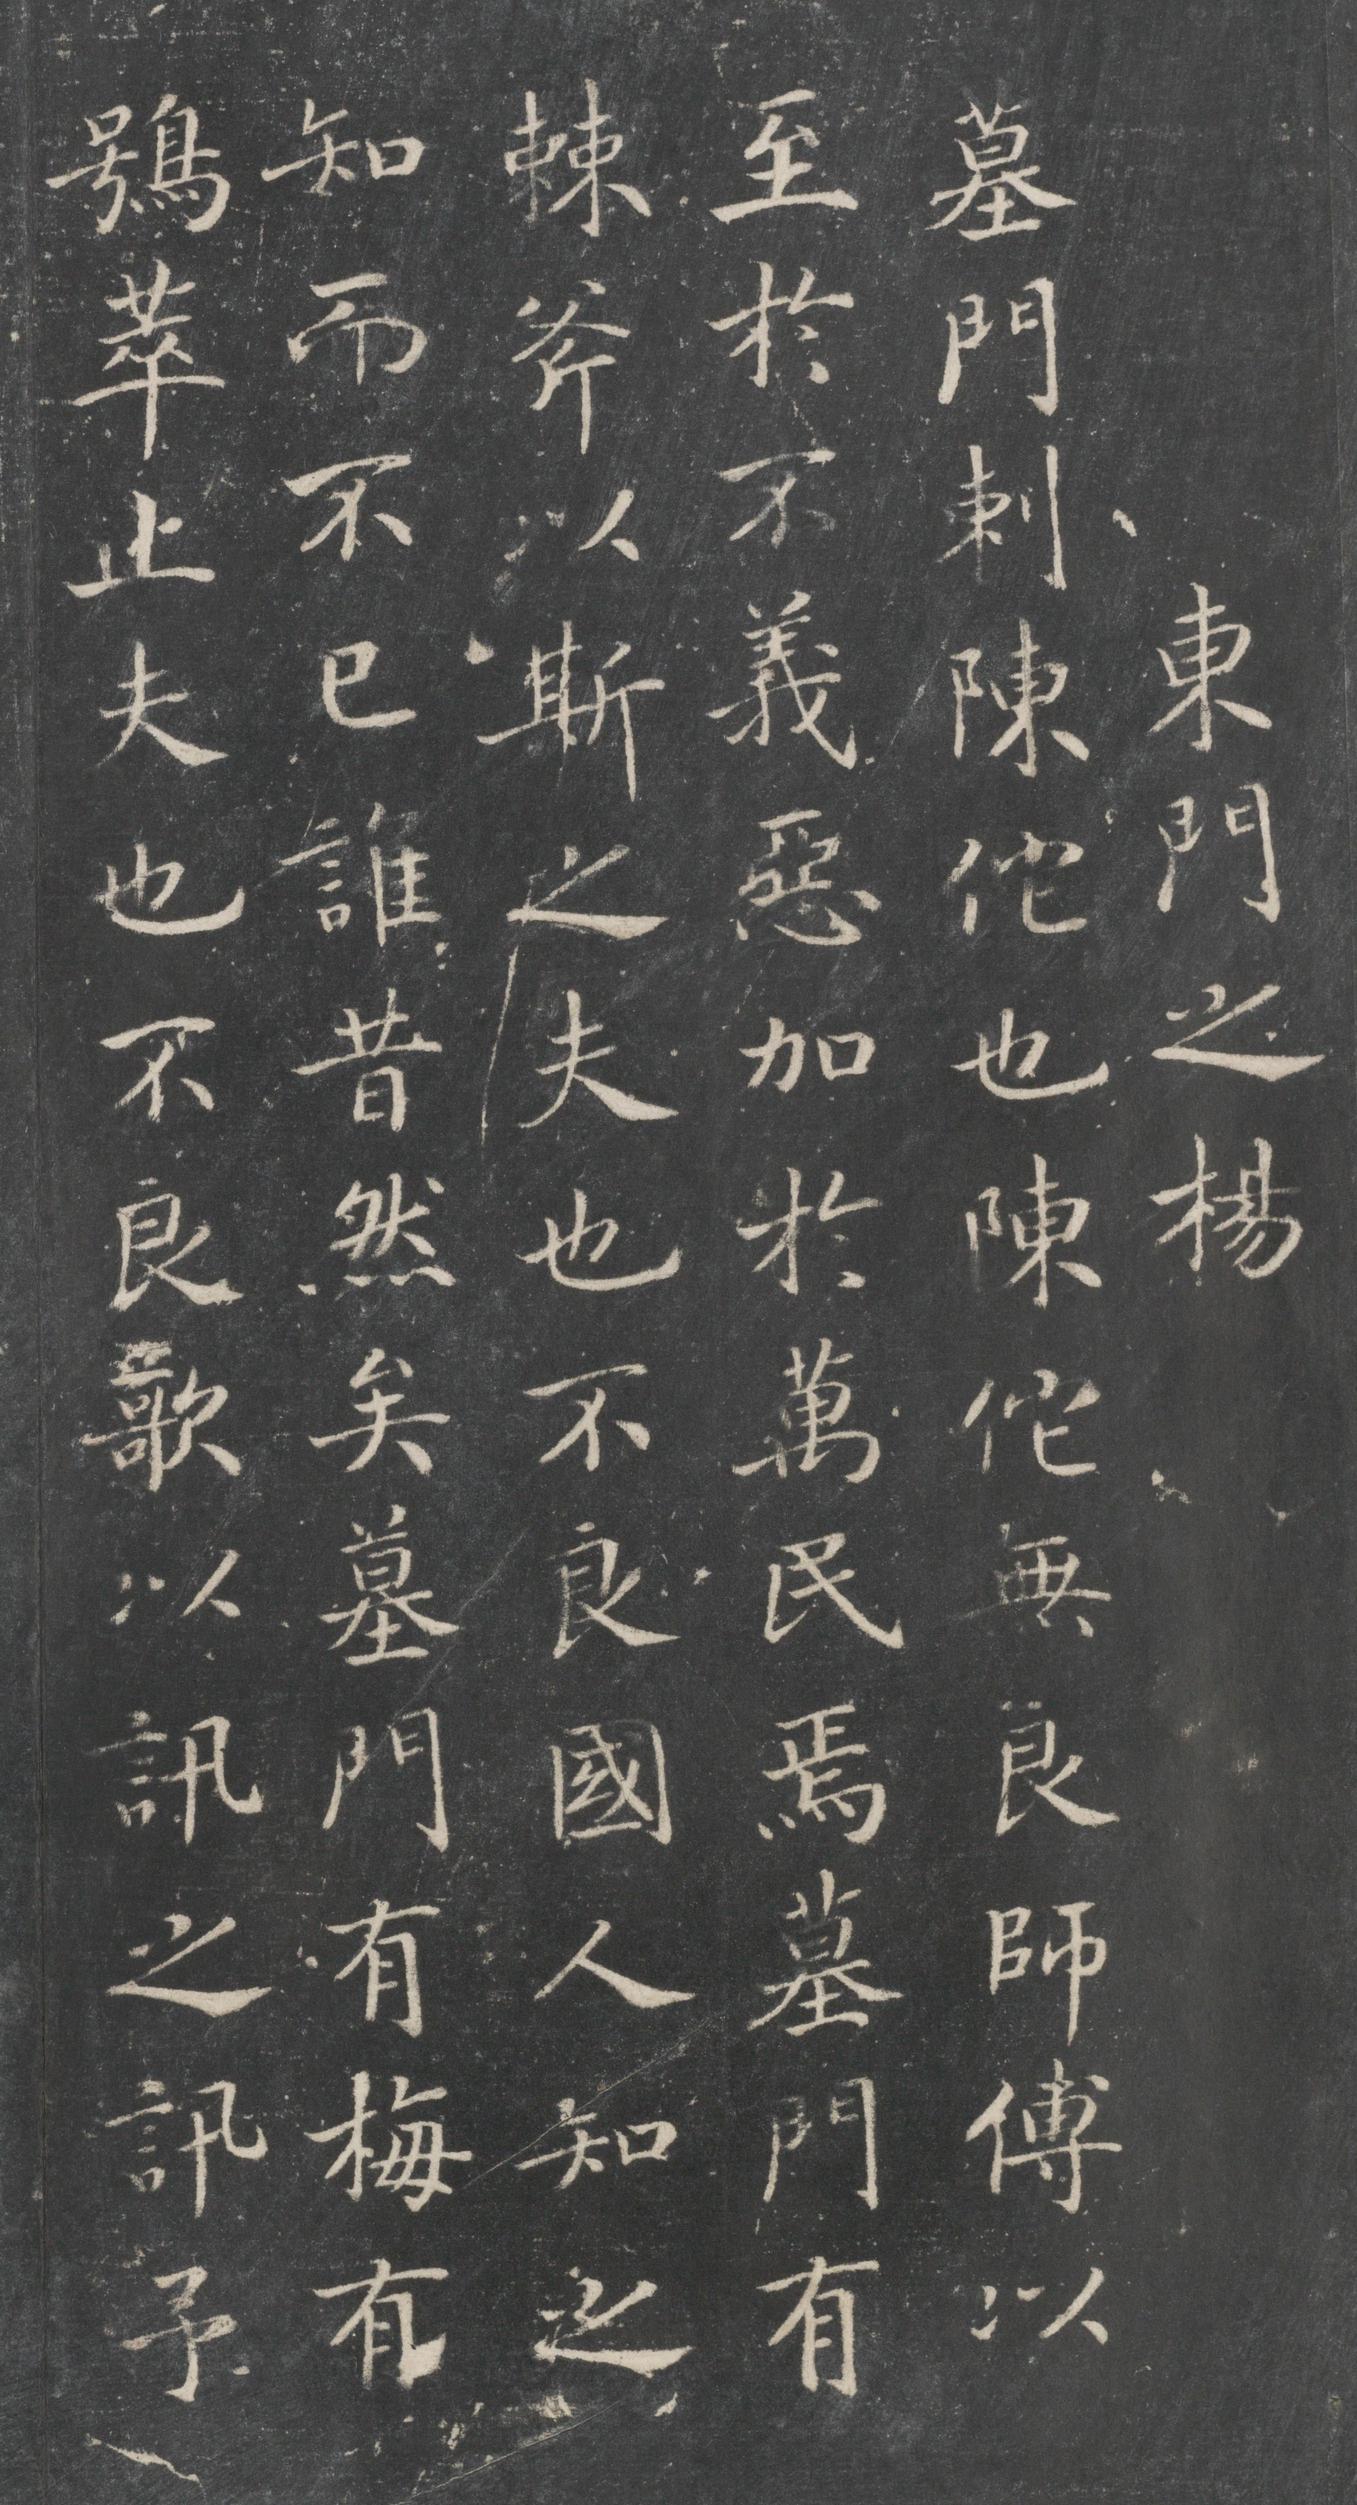 東門之楊
墓門刺陳佗也陳佗無良師傅以
至於不義惡加於萬民焉墓門有
棘斧以斯之夫也不良國人知之
知而不已誰昔然矣墓門有梅有
鴞萃止夫也不良歌以訊之訊予